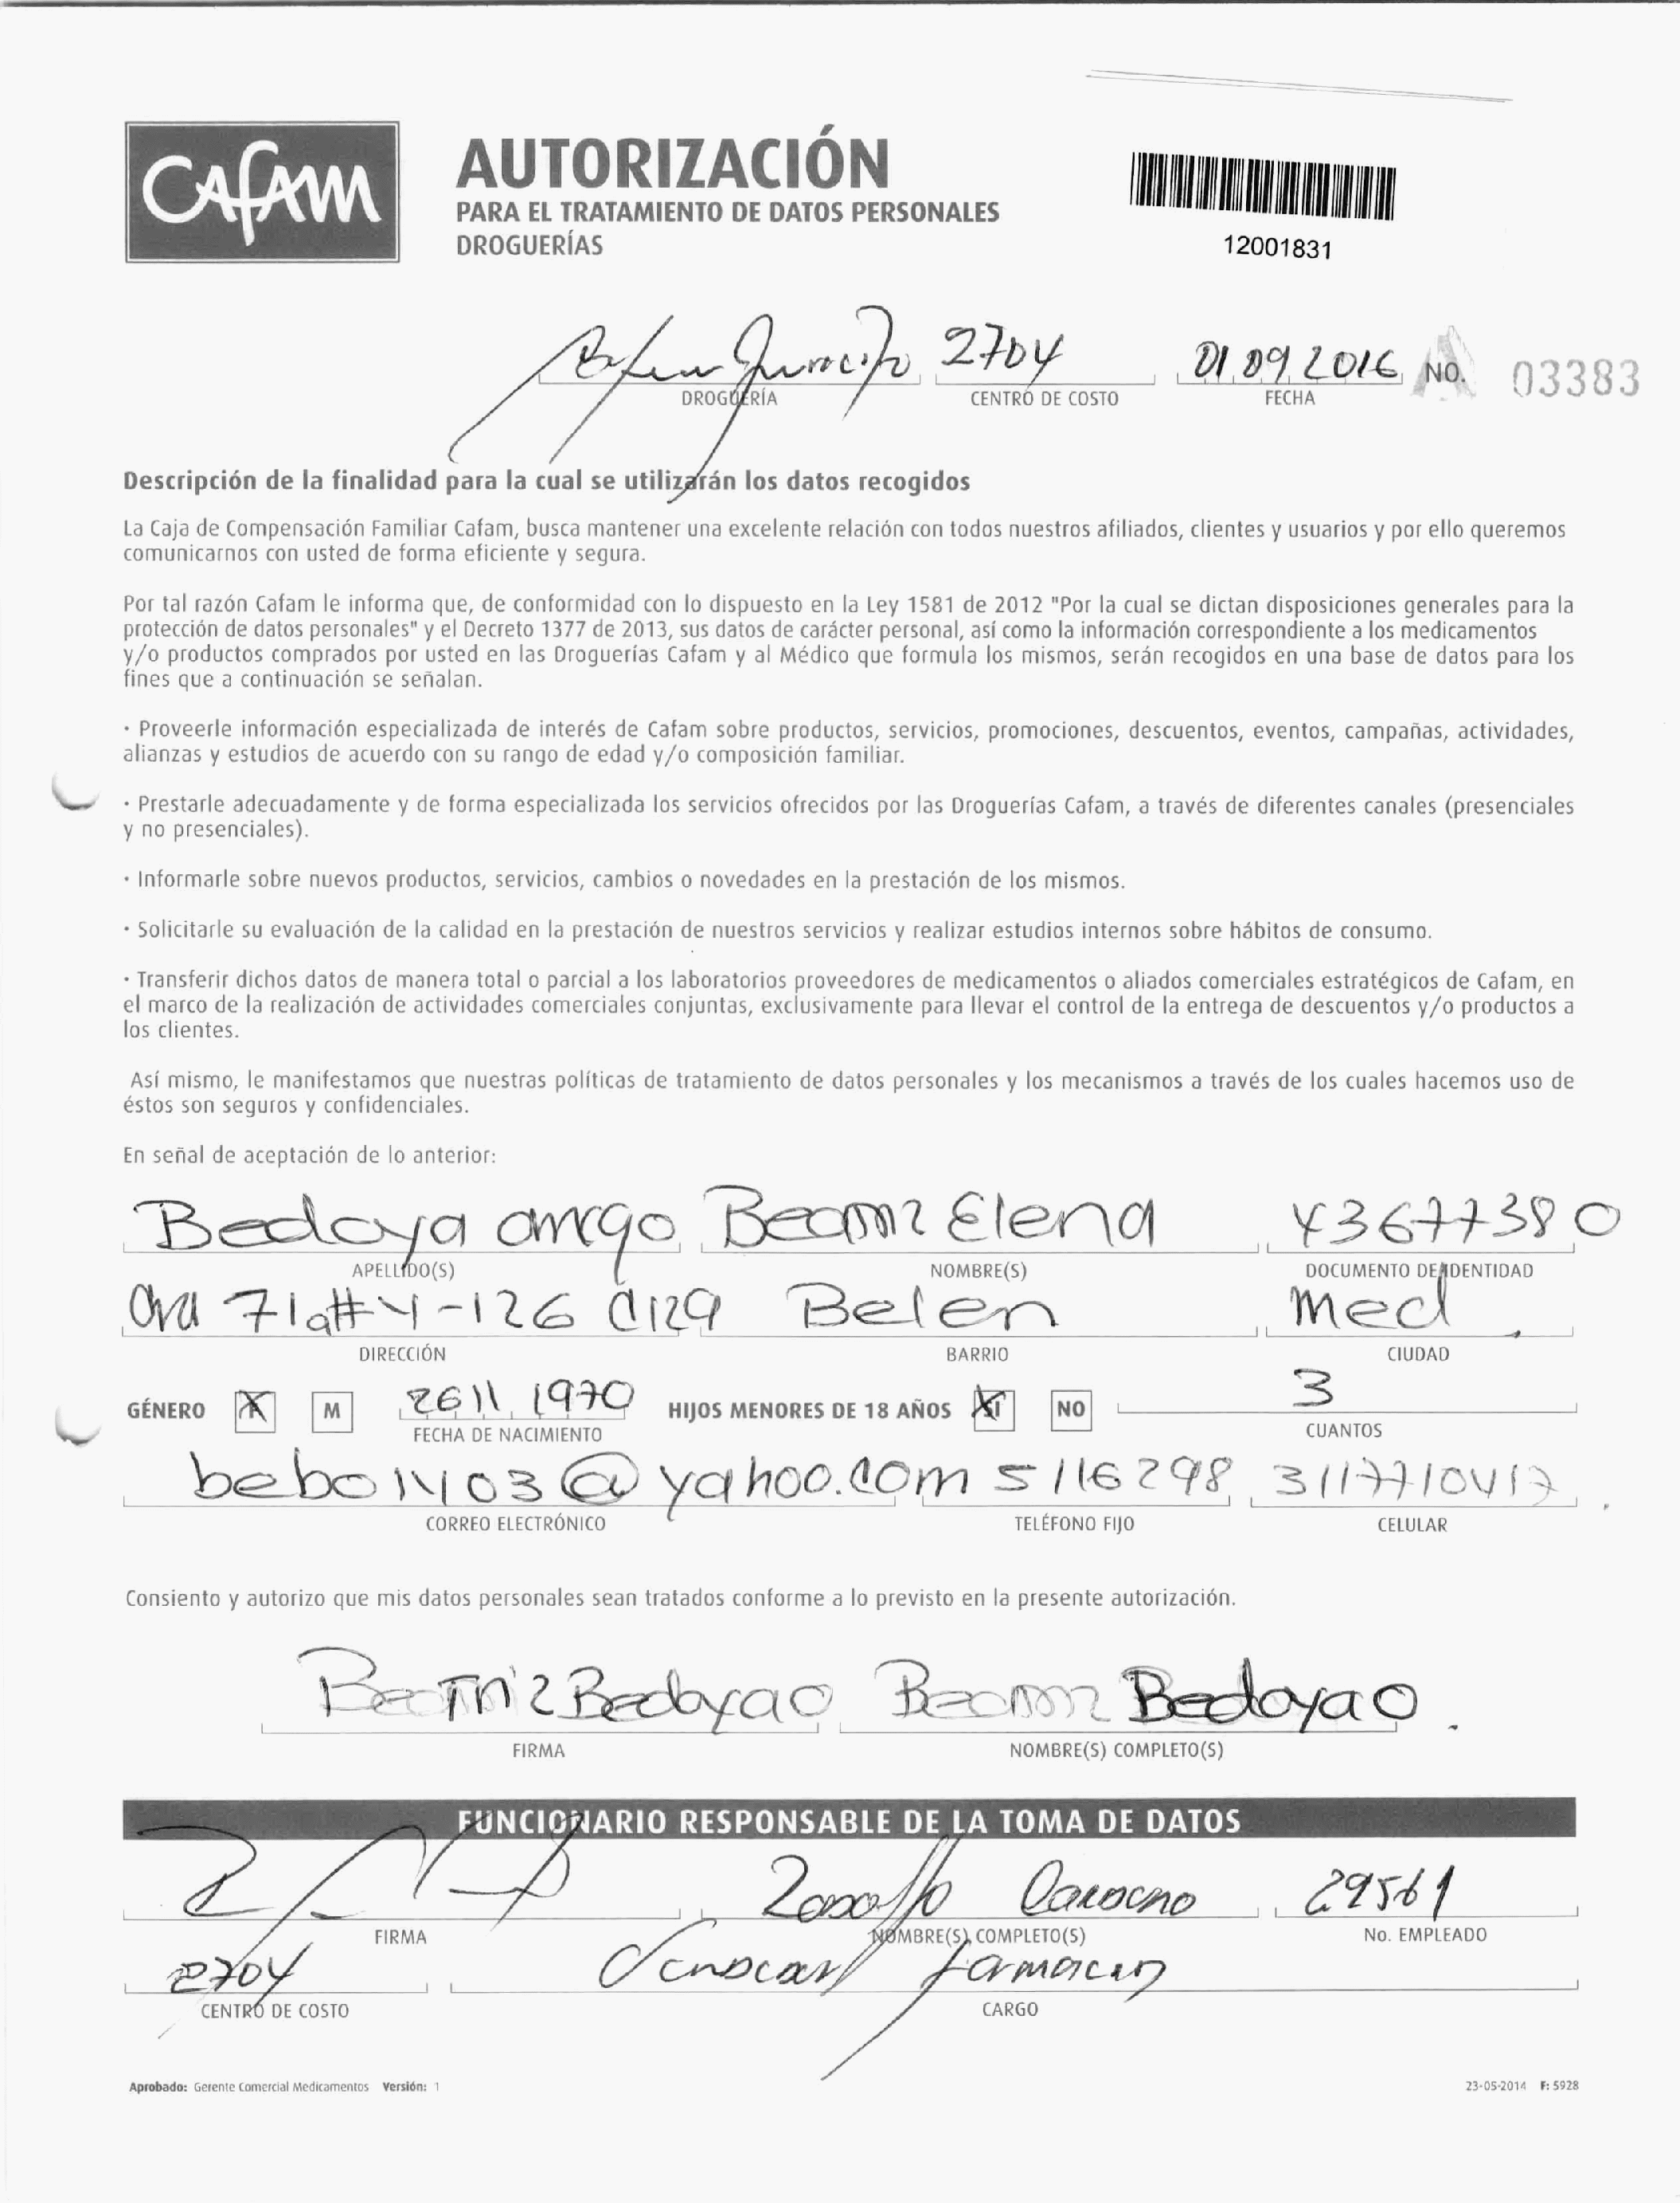 CAFAM
AUTORIZACIÓN
PARA EL TRATAMIENTO DE DATOS PERSONALES
DROGUERÍAS
12001831
2704 01 09 2016 NO. 03383
DROGUERÍA CENTRO DE COSTO FECHA
Descripción de la finalidad para la cual se utilizarán los datos recogidos
La Caja de Compensación Familiar Cafam, busca mantener una excelente relación con todos nuestros afiliados, clientes y usuarios y por ello queremos
comunicarnos con usted de forma eficiente y segura.
Por tal razón Cafam le informa que, de conformidad con lo dispuesto en la Ley 1581 de 2012 "Por la cual se dictan disposiciones generales para la
protección de datos personales" y el Decreto 1377 de 2013, sus datos de carácter personal, así como la información correspondiente a los medicamentos
y/o productos comprados por usted en las Droguerías Cafam y al Médico que formula los mismos, serán recogidos en una base de datos para los
fines que a continuación se señalan.
· Proveerle información especializada de interés de Cafam sobre productos, servicios, promociones, descuentos, eventos, campañas, actividades,
alianzas y estudios de acuerdo con su rango de edad y/o composición familiar.
· Prestarle adecuadamente y de forma especializada los servicios ofrecidos por las Droguerías Cafam, a través de diferentes canales (presenciales
y no presenciales).
· Informarle sobre nuevos productos, servicios, cambios o novedades en la prestación de los mismos.
· Solicitarle su evaluación de la calidad en la prestación de nuestros servicios y realizar estudios internos sobre hábitos de consumo.
· Transferir dichos datos de manera total o parcial a los laboratorios proveedores de medicamentos o aliados comerciales estratégicos de Cafam, en
el marco de la realización de actividades comerciales conjuntas, exclusivamente para llevar el control de la entrega de descuentos y/o productos a
los clientes.
Así mismo, le manifestamos que nuestras políticas de tratamiento de datos personales y los mecanismos a través de los cuales hacemos uso de
éstos son seguros y confidenciales.
En señal de aceptación de lo anterior:
Bedoya Beatriz Elena 43677380
APELLIDO(S) NOMBRE(S) DOCUMENTO DE IDENTIDAD
71a#4-126 Belen Med
DIRECCIÓN BARRIO CIUDAD
GÉNERO F M 26 11 1970 HIJOS MENORES DE 18 AÑOS SI NO 3
FECHA DE NACIMIENTO CUANTOS
bebo1403@yahoo.com 5116298 3117710417
CORREO ELECTRÓNICO TELÉFONO FIJO CELULAR
Consiento y autorizo que mis datos personales sean tratados conforme a lo previsto en la presente autorización.
Beatriz Bedoya O Beatriz Bedoya O
FIRMA NOMBRE(S) COMPLETO(S)
FUNCIONARIO RESPONSABLE DE LA TOMA DE DATOS
29561
FIRMA NOMBRE(S) COMPLETO(S) No. EMPLEADO
2704
CENTRO DE COSTO CARGO
Aprobado: Gerente Comercial Medicamentos Versión: 1 23-05-2014 F: 5928